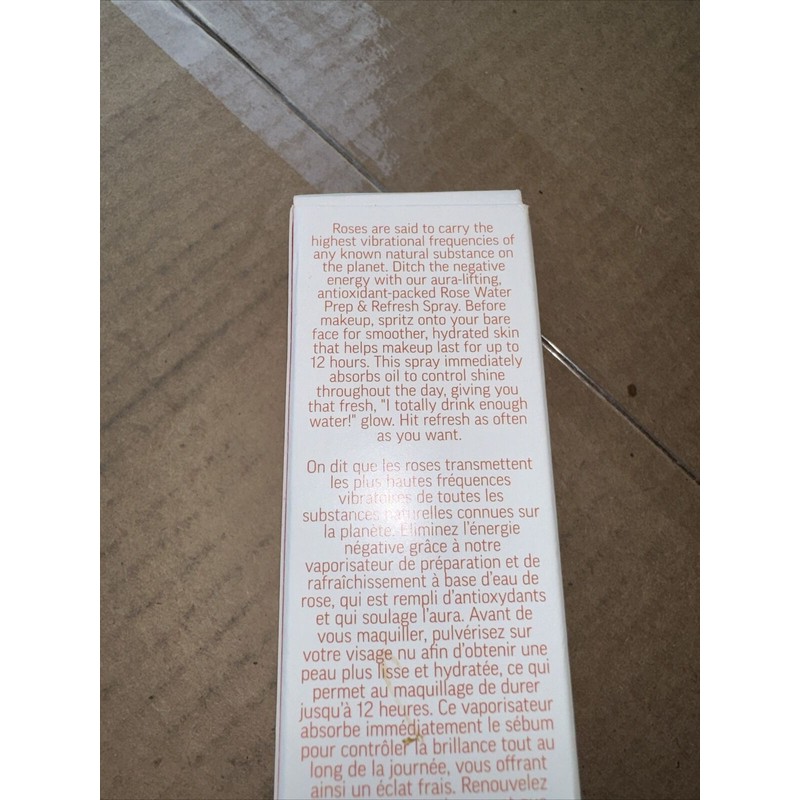 Roses are said to carry the
highest vibrational frequencies of
any known natural substance on
the planet. Ditch the negative
energy with our aura-lifting,
antioxidant-packed Rose Water
Prep & Refresh Spray. Before
makeup, spritz onto your bare
face for smoother, hydrated skin
that helps makeup last for up to
12 hours. This spray immediately
absorbs oil to control shine
throughout the day, giving you
that fresh, "I totally drink enough
water!" glow. Hit refresh as often
as you want.
On dit que les roses transmettent
les plus hautes fréquences
vibratoires de toutes les
substances naturelles connues sur
la planète. Éliminez l'énergie
négative grâce à notre
vaporisateur de préparation et de
rafraîchissement à base d'eau de
rose, qui est rempli d'antioxydants
et qui soulage l'aura. Avant de
vous maquiller, pulvérisez sur
votre visage nu afin d'obtenir une
peau plus lisse et hydratée, ce qui
permet au maquillage de durer
jusqu'à 12 heures. Ce vaporisateur
absorbe immédiatement le sébum
pour contrôler la brillance tout au
long de la journée, vous offrant
ainsi un éclat frais. Renouvelez